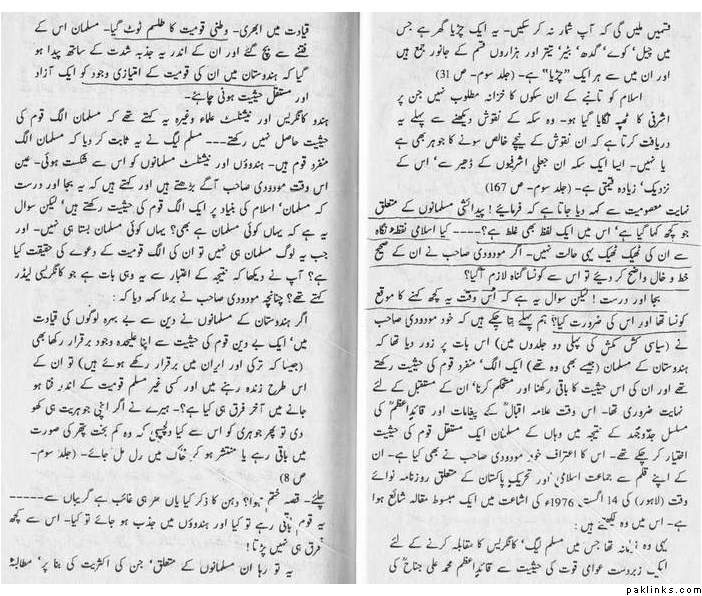 قسمیں ملیں گی کہ آپ شمار نہ کر سکیں۔ یہ ایک چڑیا گھر ہے جس
میں چیل، کوے، گدھ، بیڑ، تیتر اور ہزاروں قسم کے جانور جمع ہیں
اور ان میں سے ہر ایک "چڑیا" ہے۔ (جلد سوم۔ ص 31)
اسلام کو تانبے کے ان سکوں کا خزانہ مطلوب نہیں جن پر
اشرفی کا ٹھپہ لگایا گیا ہو۔ وہ سکہ کے نقوش دیکھنے سے پہلے یہ
دریافت کرتا ہے کہ ان نقوش کے نیچے خالص سونے کا جوہر بھی ہے
یا نہیں۔ ایسا ایک سکہ ان جعلی اشرفیوں کے ڈھیر سے، اس کے
نزدیک، زیادہ قیمتی ہے۔ (جلد سوم۔ ص 167)
نہایت معصومیت سے کہہ دیا جاتا ہے کہ فرمائیے! پیدائشی مسلمانوں کے متعلق
جو کچھ کہا گیا ہے، اس میں ایک لفظ بھی غلط ہے؟---- کیا اسلامی نقطہ نگاہ
سے ان کی ٹھیک ٹھیک یہی حالت نہیں۔ اگر مودودی صاحب نے ان کے صحیح
خط و خال واضح کر دیئے تو اس سے کونسا گناہ لازم آ گیا؟
بجا اور درست! لیکن سوال یہ ہے کہ اس وقت یہ کچھ کہنے کا موقع
کونسا تھا اور اس کی ضرورت کیا؟ ہم پہلے بتا چکے ہیں کہ خود مودودی صاحب
نے (سیاسی کش مکش کی پہلی دو جلدوں میں) اس بات پر زور دیا تھا کہ
ہندوستان کے مسلمان (جیسے بھی وہ تھے) ایک الگ، منفرد قوم کی حیثیت رکھتے
تھے اور ان کی اس حیثیت کا باقی رکھنا اور مستحکم کرنا، ان کے مستقبل کے لئے
نہایت ضروری تھا۔ اس وقت علامہ اقبالؒ کے پیغامات اور قائداعظمؒ کی
مسلسل جدوجہد کے نتیجہ میں وہاں کے مسلمان ایک مستقل قوم کی حیثیت
اختیار کر چکے تھے۔ اس کا اعتراف خود مودودی صاحب نے بھی کیا ہے۔ ان
کے اپنے قلم سے جماعت اسلامی اور تحریک پاکستان کے متعلق روزنامہ نوائے
وقت (لاہور) کی 14 اگست 1976ء کی اشاعت میں ایک مبسوط مقالہ شائع ہوا
ہے۔ اس میں وہ لکھتے ہیں:
یہی وہ زمانہ تھا جس میں مسلم لیگ، کانگریس کا مقابلہ کرنے کے لئے
ایک زبردست عوامی قوت کی حیثیت سے قائداعظم محمد علی جناحؒ کی
قیادت میں ابھری۔ وطنی قومیت کا طلسم ٹوٹ گیا۔ مسلمان اس کے
فتنے سے بچ گئے اور ان کے اندر یہ جذبہ شدت کے ساتھ پیدا ہو
گیا کہ ہندوستان میں ان کی قومیت کے امتیازی وجود کو ایک آزاد
اور مستقل حیثیت ہونی چاہئے۔
ہندو کانگریس اور نیشنلسٹ علماء وغیرہ یہ کہتے تھے کہ مسلمان الگ قوم کی
حیثیت حاصل نہیں رکھتے---- مسلم لیگ نے یہ ثابت کر دیا کہ مسلمان الگ
منفرد قوم ہیں۔ ہندوؤں اور نیشنلسٹ مسلمانوں کو اس سے شکست ہوئی۔ عین
اس وقت مودودی صاحب آگے بڑھتے ہیں اور کہتے ہیں کہ یہ بجا اور درست
کہ مسلمان، اسلام کی بنیاد پر ایک الگ قوم کی حیثیت رکھتے ہیں، لیکن سوال
یہ ہے کہ یہاں کوئی مسلمان ہے بھی؟ یہاں کوئی مسلمان بستا ہی نہیں۔ اور
جب یہ لوگ مسلمان ہی نہیں تو ان کی الگ قومیت کے دعوے کی حقیقت کیا
ہے؟ آپ نے دیکھا کہ نتیجہ کے اعتبار سے یہ وہی بات ہے جو کانگریسی لیڈر
کہتے تھے؟ چنانچہ مودودی صاحب نے برملا کہہ دیا کہ:
اگر ہندوستان کے مسلمانوں نے دین سے بے بہرہ لوگوں کی قیادت
میں، ایک بے دین قوم کی حیثیت سے اپنا علیحدہ وجود برقرار رکھا بھی
(جیسا کہ ترکی اور ایران میں برقرار رکھے ہوئے ہیں) تو ان کے
اس طرح زندہ رہنے میں اور کسی غیر مسلم قومیت کے اندر فنا ہو
جانے میں آخر فرق ہی کیا ہے؟۔ ہیرے نے اگر اپنی جوہریت ہی کھو
دی تو پھر جوہری کو اس سے کیا دلچسپی کہ وہ کم بخت پتھر کی صورت
میں باقی رہے یا منتشر ہو کر خاک میں رل مل جائے۔ (جلد سوم۔
ص 8)
چلئے۔ قصہ ختم ہوا؟ دہن کا ذکر کیا یاں سر ہی غائب ہے گریباں سے----
یہ قوم باقی رہے تو کیا اور ہندوؤں میں جذب ہو جائے تو کیا۔ اس سے کچھ
فرق ہی نہیں پڑتا!
یہ تو رہا ان مسلمانوں کے متعلق، جن کی اکثریت کی بنا پر، مطالبہ
paklinks.com